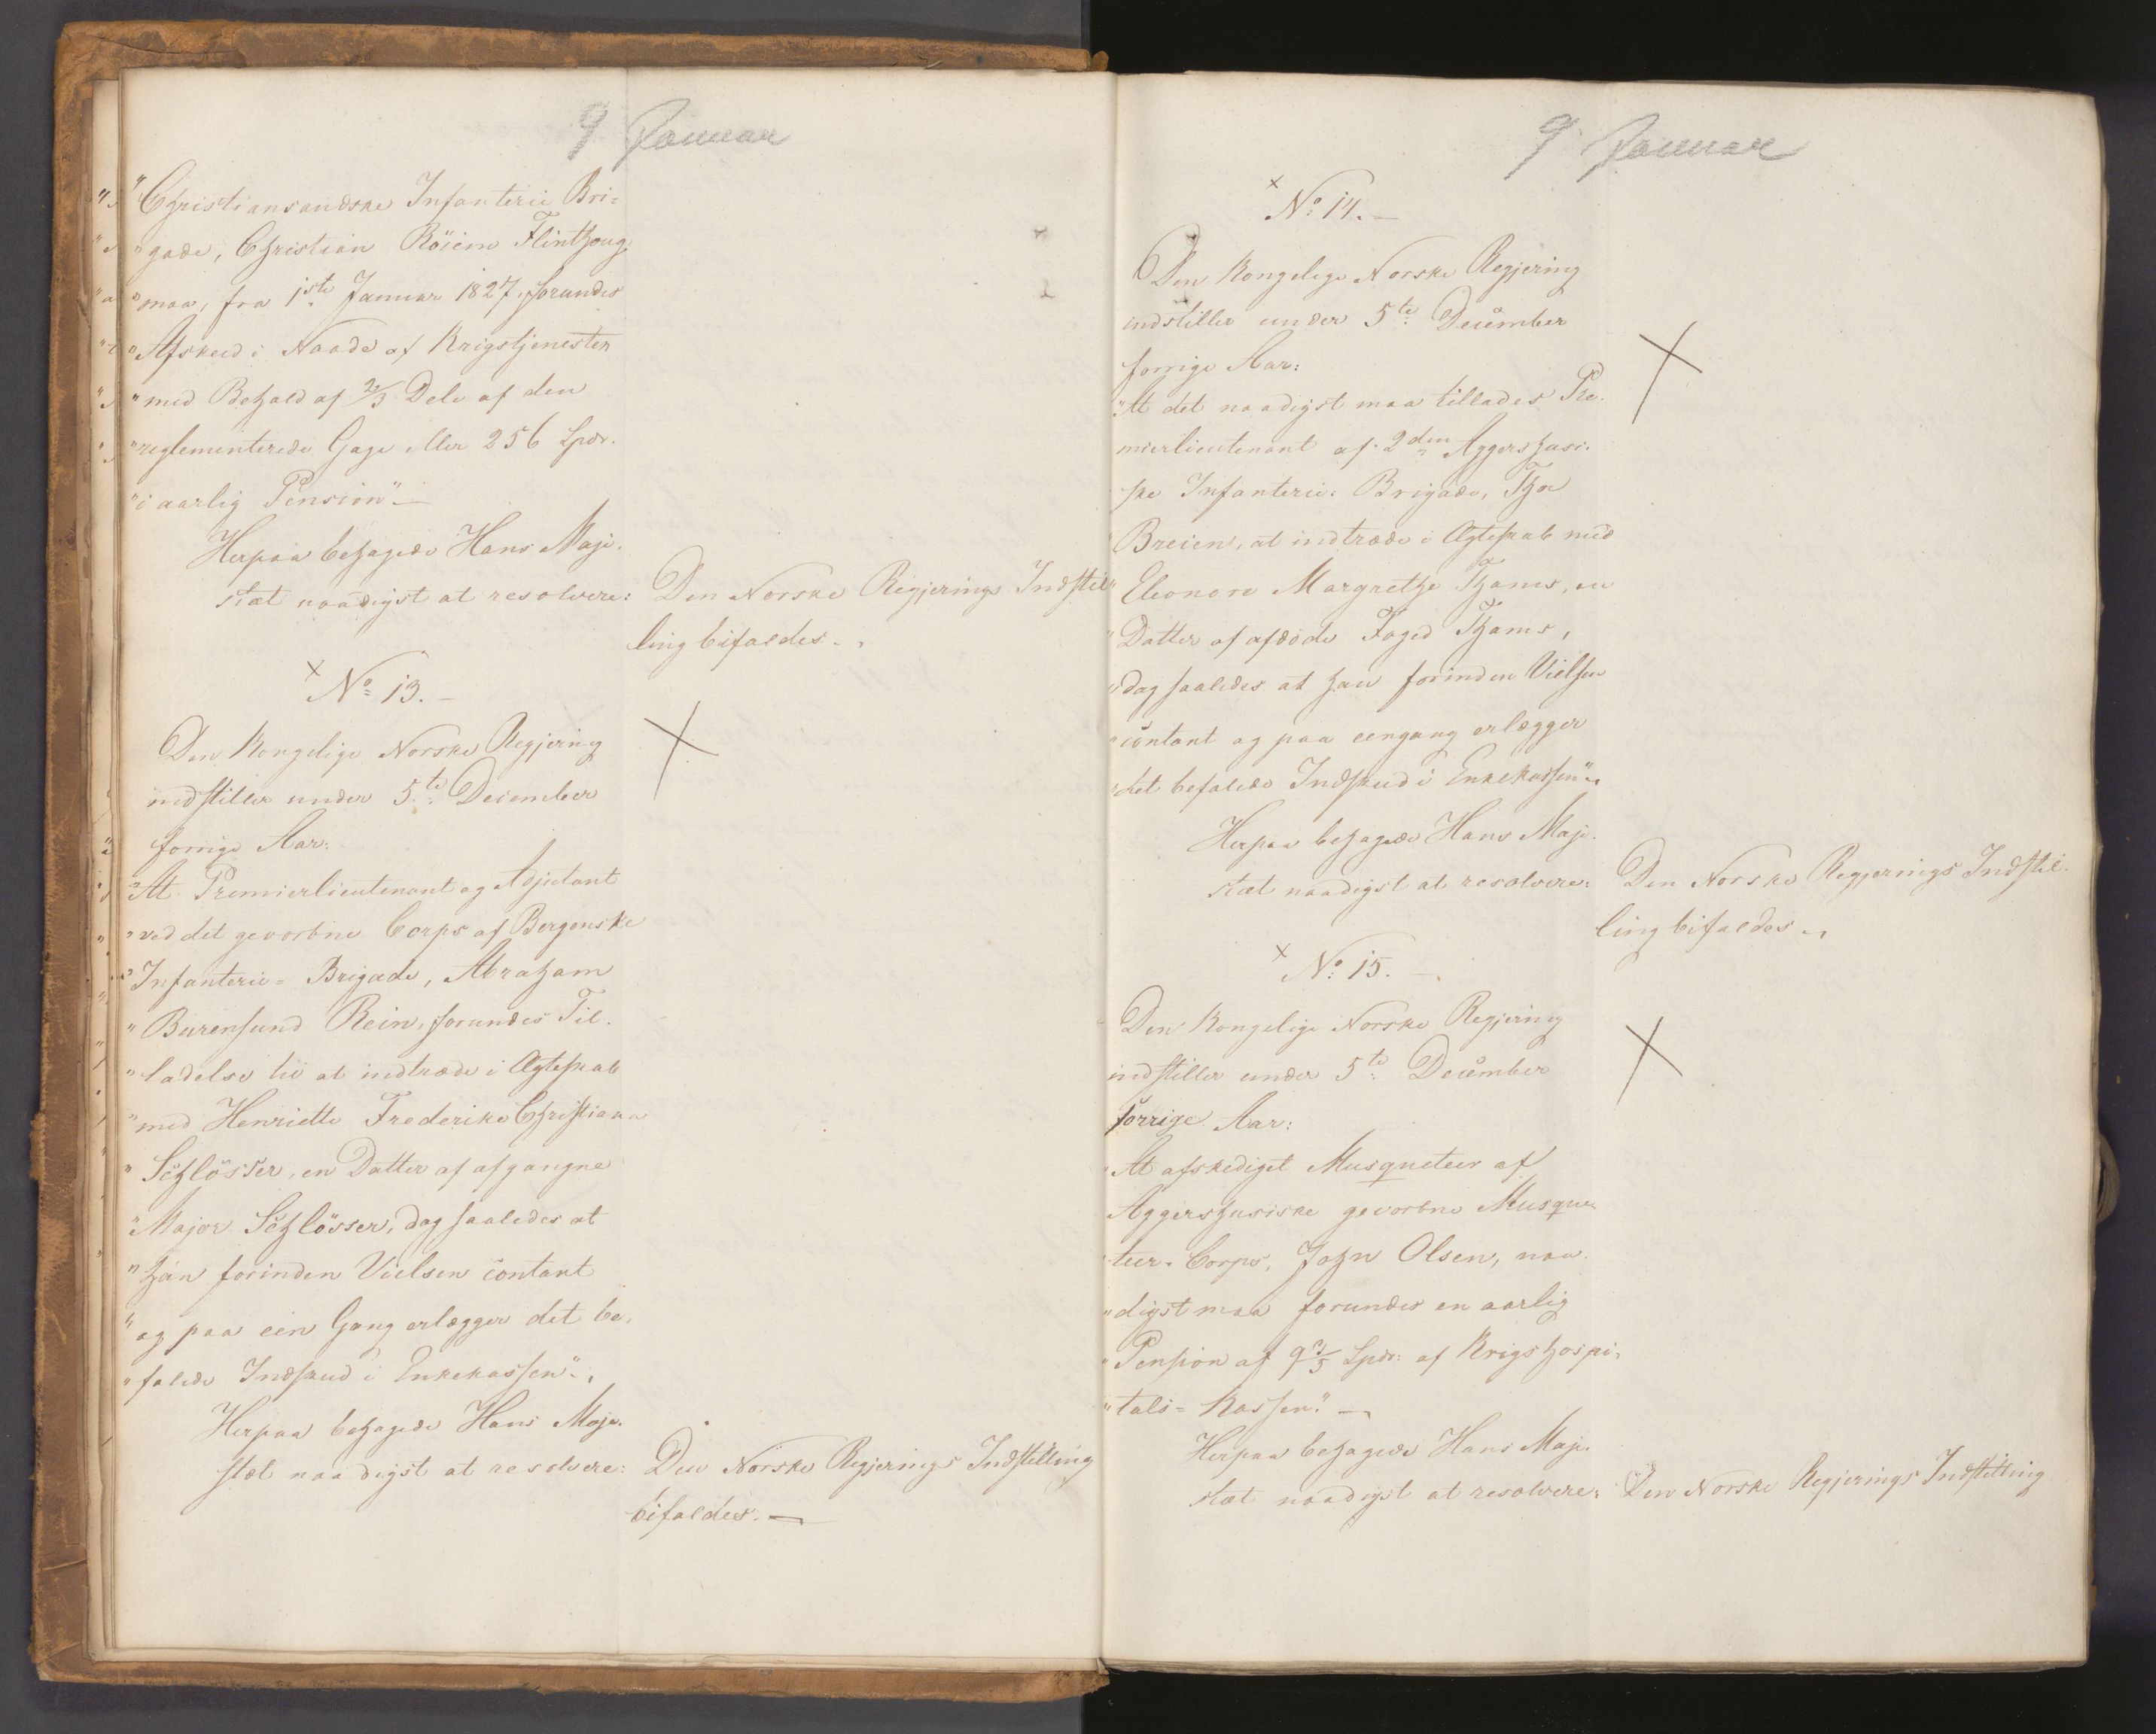 9 Januar
"Christiansandske Infanterie Bri-
"gade, Christian Röiem Flinthoug
"maa, fra 1ste Januar 1827, forundes
"Afskeed i Naade af Krigstjenesten
"med Behold af 2/3 Dele af den
"reglementerede Gage eller 256 Spdr.
"i aarlig Pension".-
Herpaa behagede Hans Maje-
stæt naadigst at resolvere: Den Norske Regjerings Indstil-
ling bifaldes.-
No 13.-
Den Kongelige Norske Regjering
indstiller under 5te December
forrige Aar:
"At Premierlieutenant og Adjutant
"ved det gevorbne Corps af Bergenske
"Infanterie-Brigade, Abraham
"Burensund Rein, forundes Til-
"ladelse til at indtræde i Ægteskab
"med Henriette Frederike Christiana
"Schlösser, en Datter af afgangne
"Major Schlösser, dog saaledes at
"han forinden Vielsen contant
"og paa een Gang erlægger det be-
"falede Indskud i Enkekassen".
Herpaa behagede Hans Maje-
stæt naadigst at resolvere: Den Norske Regjerings Indstilling
bifaldes.-
9 Januar
No 14.-
Den Kongelige Norske Regjering
indstiller under 5te December
forrige Aar:
"At det naadigst maa tillades Pre-
mierlieutenant af 2den Aggershusi-
ske Infanterie-Brigade, Thor
"Breien, at indtræde i Ægteskab med
"Eleonore Margrethe Thams, en
"Datter af afdöde Foged Thams,
"dog saaledes at han forinden Vielsen
"contant og paa eengang erlægger
"det befalede Indskud i Enkekassen".
Herpaa behagede Hans Maje-
stæt naadigst at resolvere: Den Norske Regjerings Indstil-
ling bifaldes.-
No 15.-
Den Kongelige Norske Regjering
indstiller under 5te December
forrige Aar:
"At afskediget Musqueteer af
Aggershusiske gevorbne Musque-
"teer-Corps, John Olsen, naa-
"digst maa forundes en aarlig
"Pension af 9 3/5 Spdr: af Krigshospi-
"tals-Kassen".-
Herpaa behagede Hans Maje-
stæt naadigst at resolvere: Den Norske Regjerings Indstilling